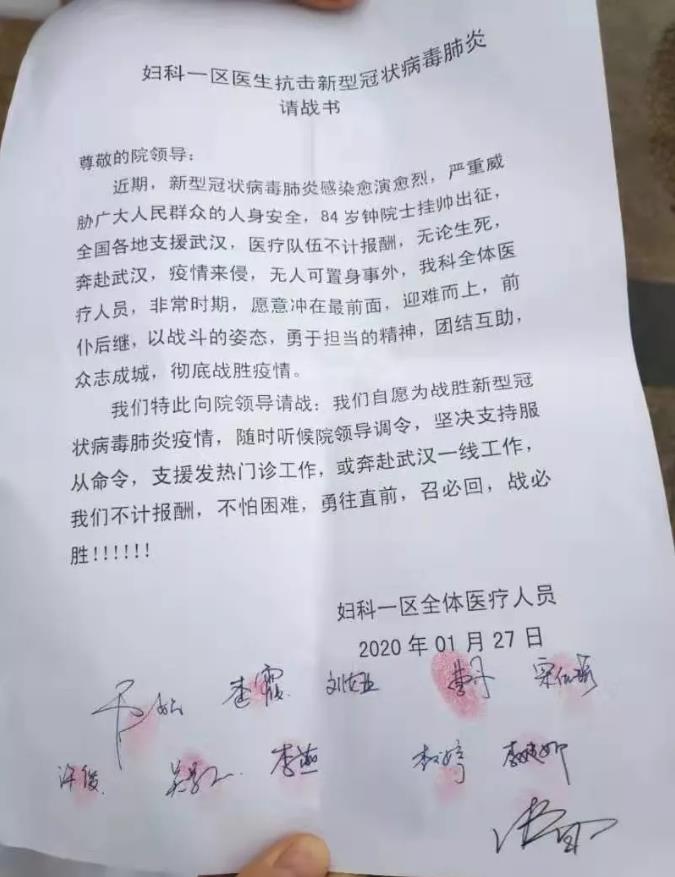 妇科一区医生抗击新型冠状病毒肺炎
请战书
尊敬的院领导：
近期，新型冠状病毒肺炎感染愈演愈烈，严重威
胁广大人民群众的人身安全，84 岁钟院士挂帅出征，
全国各地支援武汉，医疗队伍不计报酬，无论生死，
奔赴武汉，疫情来侵，无人可置身事外，我科全体医
疗人员，非常时期，愿意冲在最前面，迎难而上，前
仆后继，以战斗的姿态，勇于担当的精神，团结互助，
众志成城，彻底战胜疫情。
我们特此向院领导请战：我们自愿为战胜新型冠
状病毒肺炎疫情，随时听候院领导调令，坚决支持服
从命令，支援发热门诊工作，或奔赴武汉一线工作，
我们不计报酬，不怕困难，勇往直前，召必回，战必
胜!!!!!!
妇科一区全体医疗人员
2020 年 01 月 27 日
许俊 李燕